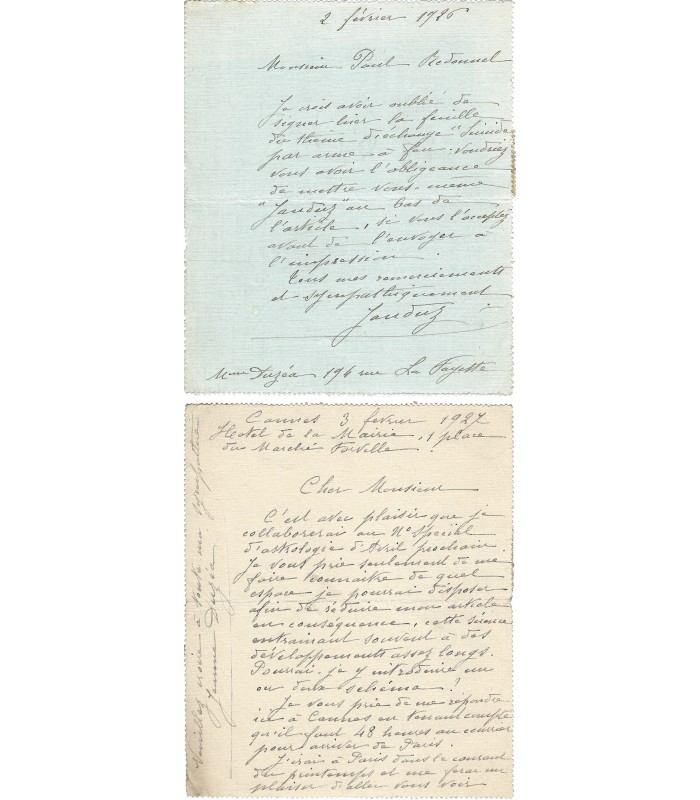 2 février 1926
Monsieur Paul Redonnel
Je crois avoir oublié de
signer hier la feuille
du thème d'échange "Suicide
par arme à feu. Voudriez
vous avoir l'obligeance
de mettre vous-même
"Janduz" au bas de
l'article, si vous l'acceptez
avant de l'envoyer à
l'impression.
Tous mes remerciements
et sympathiquement
Janduz
Mme Duzéa 196 rue La Fayette
Cannes 3 février 1927
Hotel de la Mairie, 1 place
du Marché Forville.
Cher Monsieur
C'est avec plaisir que je
collaborerai au No Spécial
d'astrologie d'Avril prochain.
Je vous prie seulement de me
faire connaitre de quel
espace je pourrai disposer
afin de réduire mon article
en conséquence, cette science
entrainant souvent à des
développements assez longs.
Pourrai-je y introduire un
ou deux schéma?
Je vous prie de me répondre
ici à Cannes en tenant compte
qu'il faut 48 heures au courrier
pour arriver de Paris.
J'irai à Paris dans le courant
du printemps et me ferai un
plaisir d'aller vous voir
Veuillez croire à toute ma sympathie
Jeanne Duzéa